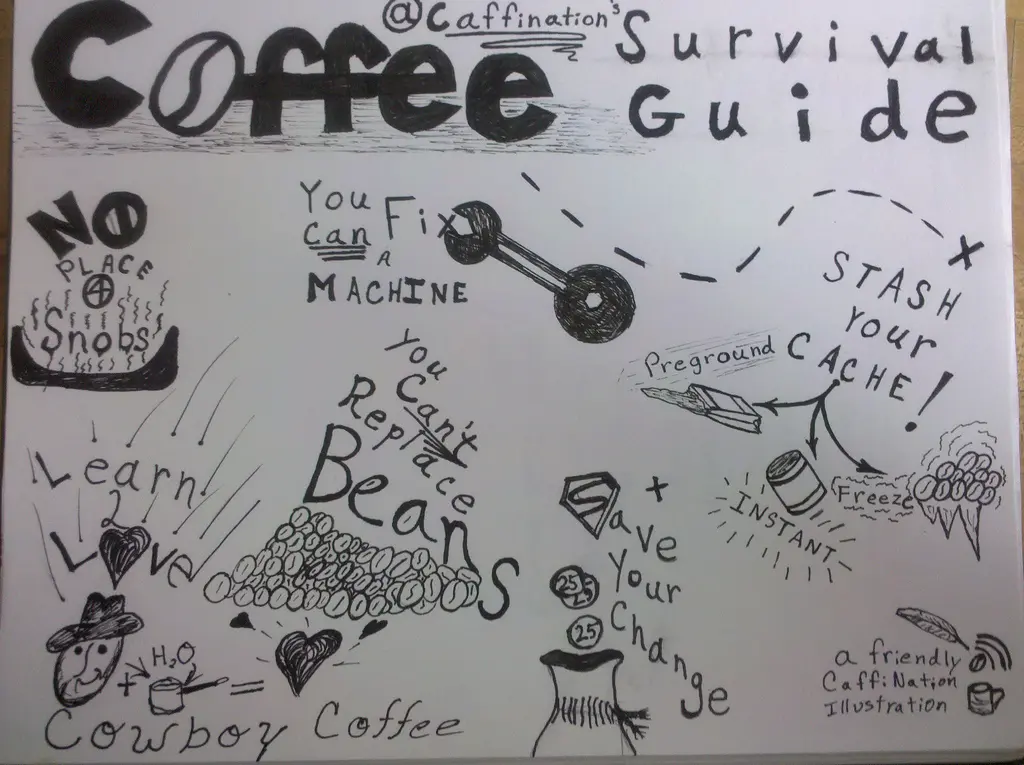 @Caffination's
Coffee Survival
Guide
NO
PLACE
4
Snobs
You
can Fix
A
MACHINE
STASH
Your
CACHE!
Preground
INSTANT
Freeze
You
Can't
Replace
Beans
Learn
2
Love
H2O
+ =
Cowboy Coffee
Save +
Your
Change
25
25
25
a friendly
CaffiNation
Illustration